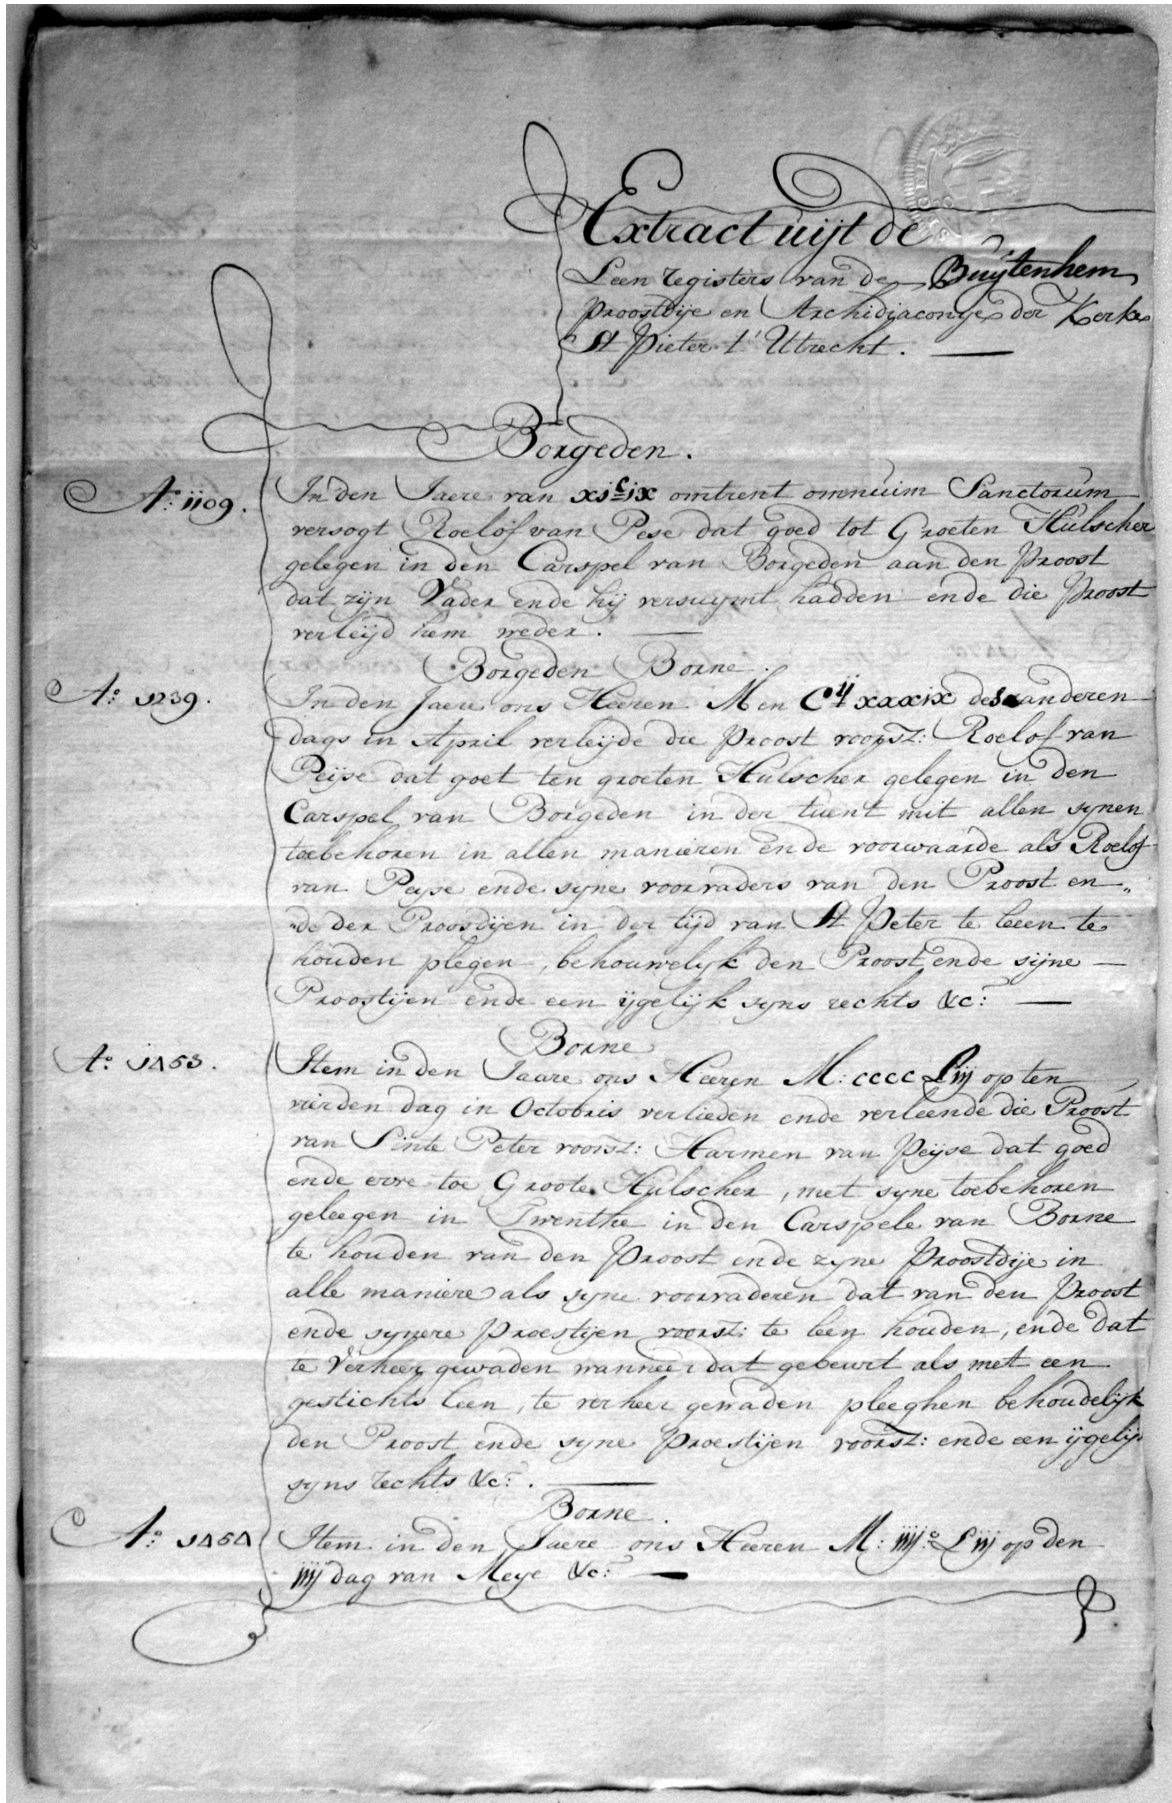 Extract uijt de
Leen registers van de Buijtenhem
proostdije en Archidiaconije der Kerke
St Pieter t' Utrecht.
Borgeden.
Ao: 1109.
In den Jaere van xjcjx omtrent omnuim Sanctorum
versogt Roelof van Pese dat goed tot Groeten Hulscher
gelegen in den Carspel van Borgeden aan den proost
dat zijn Vader ende hij versuymt hadden ende die Proost
verleijd hem weder.
Borgeden Borne.
Ao: 1239.
In den Jaere ons Heeren M en Cij xxxix des anderen
dags in April verleijde die Proost voorsz: Roelof van
Peijse dat goet ten groeten Hulscher gelegen in den
Carspel van Borgeden in der tuent mit allen synen
toebehoren in allen manieren ende voorwaarde als Roelof
van Peyse ende syne voorvaders van den Proost en„
„de der Proosdijen in der tijd van St Peter te leen te
houden plegen, behouwelyk den Proost ende sijne
Proostijen ende een ijgelijk syns rechts &c:
Borne
Ao: 1453.
Item in den Jaare ons Heeren M: cccc Liij op ten
vierden dag in Octobris verlieden ende verleende die Proost
van Sinte Peter voorsz: Harmen van Peijse dat goed
ende erve toe Groote Hulscher, met syne toebehoren
geleegen in Twenthe in den Carspele van Borne
te houden van den Proost ende zyne Proostdije in
alle maniere als syne voorvaderen dat van den Proost
ende synere Proestijen voorsz: te leen houden, ende dat
te Verheer gewaden wanneer dat gebeurt als met een
gestichts leen, te verheer gewaden pleeghen behoudelijk
den Proost ende syne Proestijen voorsz: ende een ijgelijk
syns rechts &c:.
Borne.
Ao: 1454
Item in den Jaere ons Heeren M: iiijc Liij op den
iiij dag van Meye &c: